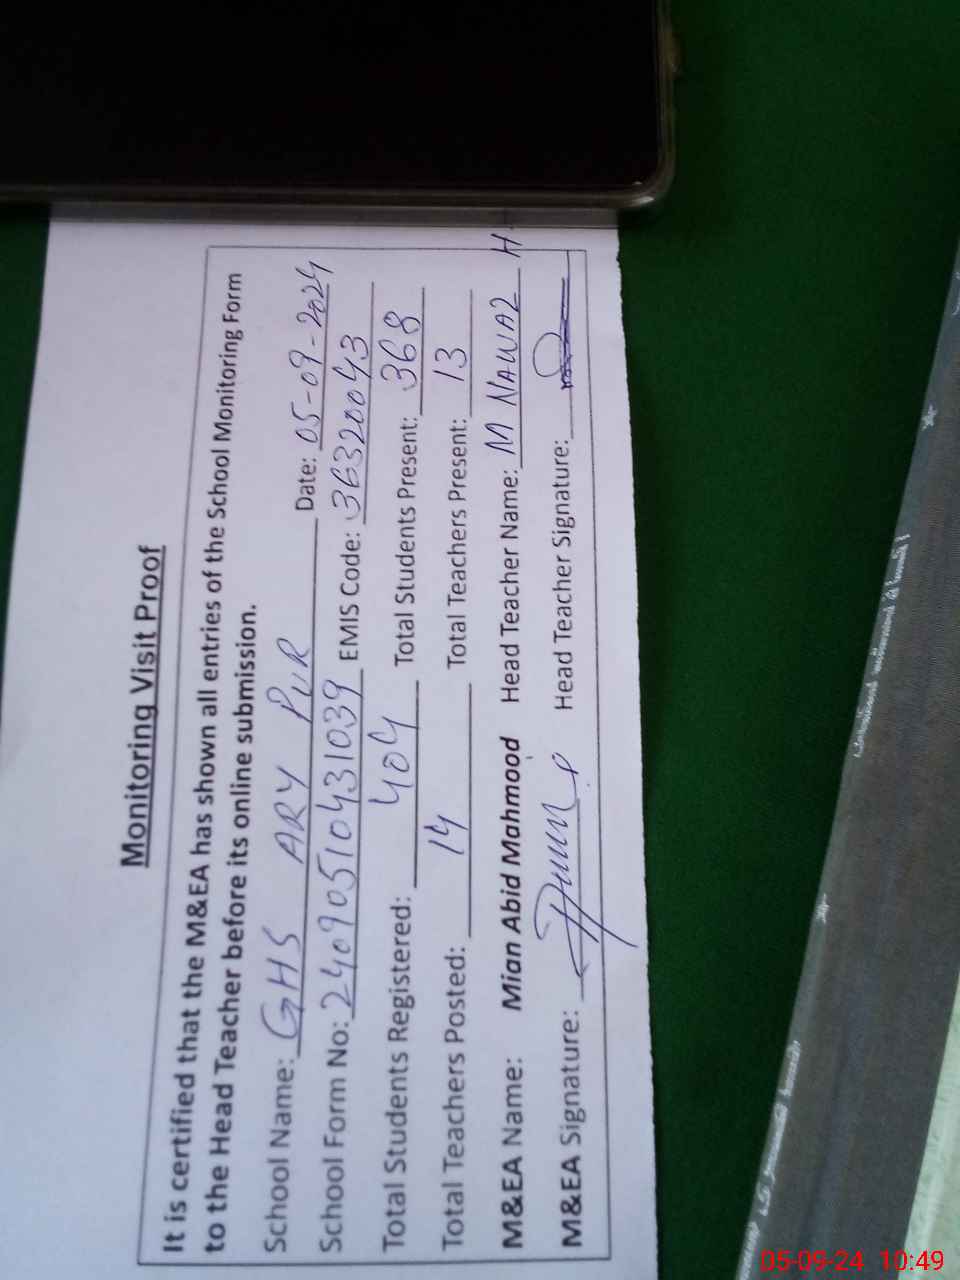 Monitoring Visit Proof
It is certified that the M&EA has shown all entries of the School Monitoring Form
to the Head Teacher before its online submission.
School Name: GHS ARY PUR Date: 05-09-2024
School Form No: 2409051043 1039 EMIS Code: 36320043
Total Students Registered: 404 Total Students Present: 368
Total Teachers Posted: 14 Total Teachers Present: 13
M&EA Name: Mian Abid Mahmood Head Teacher Name: M NAWAZ H
M&EA Signature: Head Teacher Signature:
05-09-24 10:49